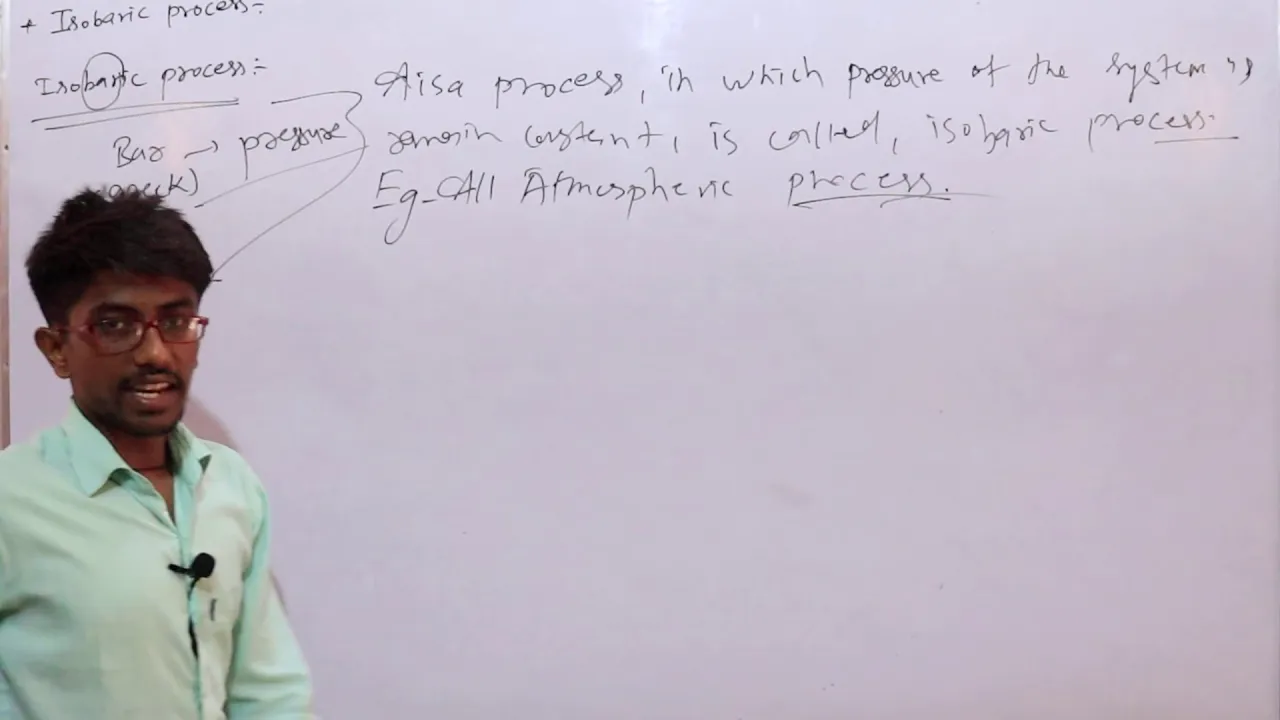 * Isobaric process:-
Isobaric process:-
Bar → pressure
Aisa process, in which pressure of the system is
remain constant, is called, isobaric process.
Eg- All Atmospheric process.